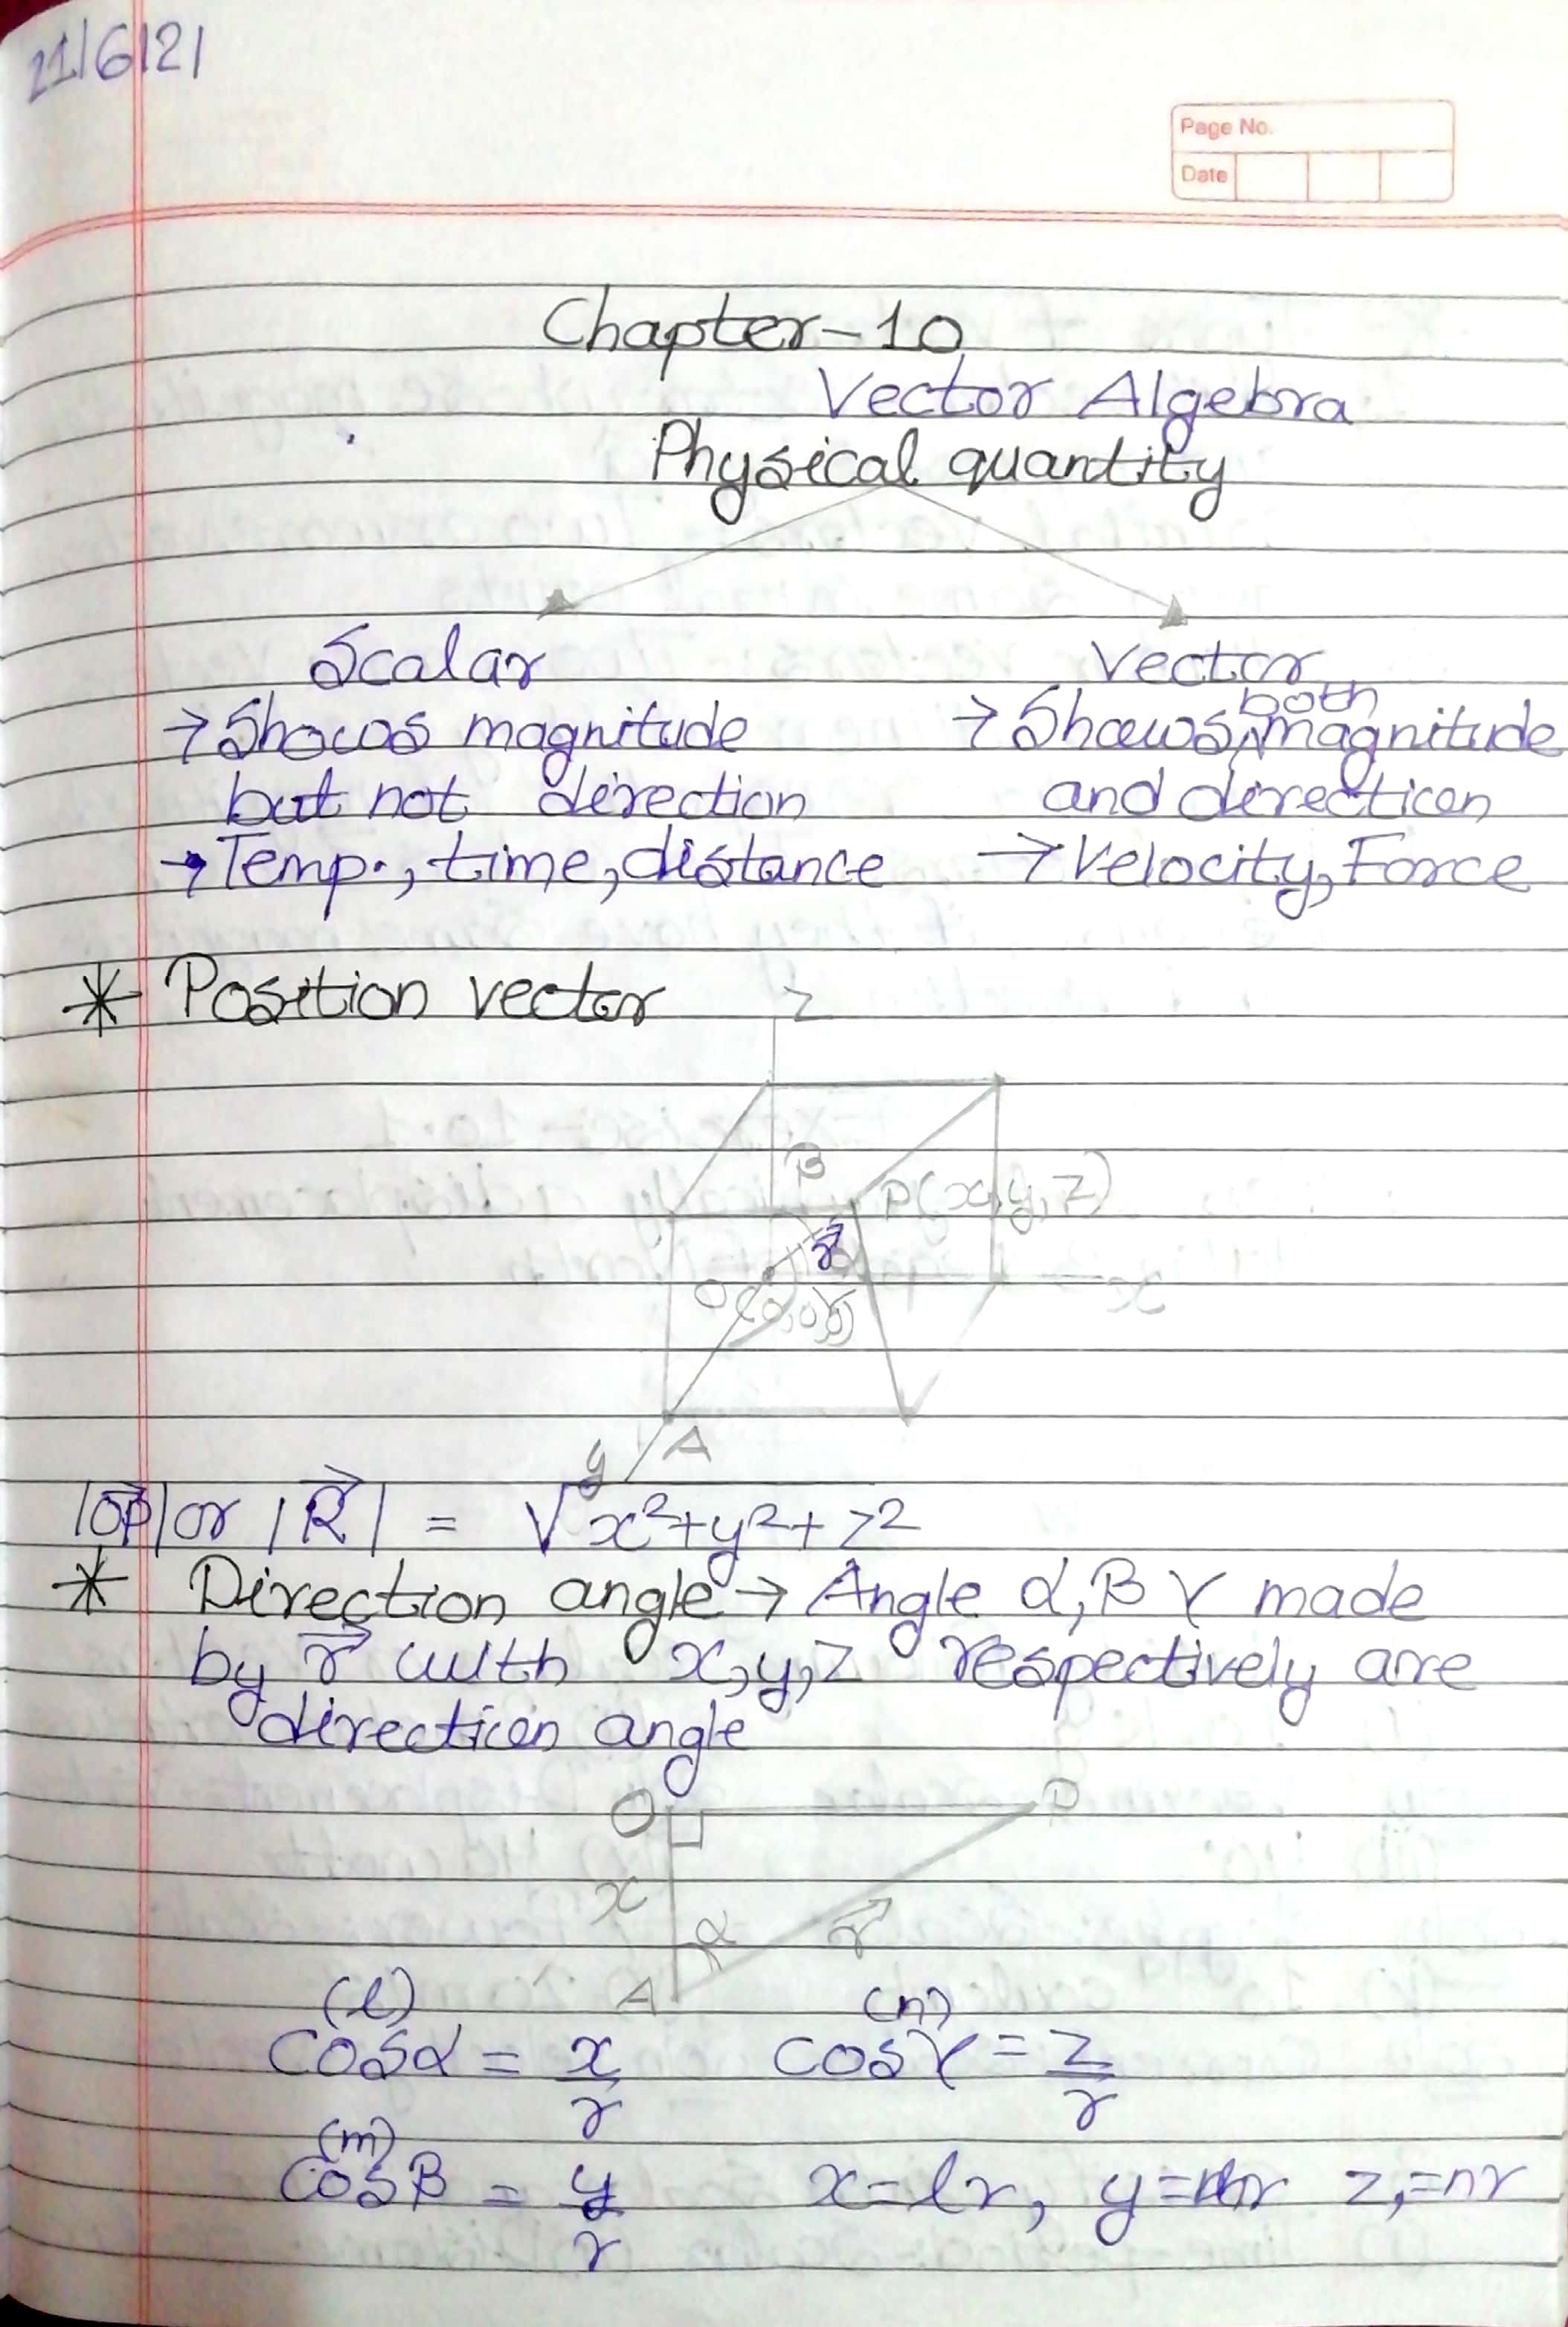 21/6/21
Page No.
Date
Chapter-10
Vector Algebra
Physical quantity
Scalar
→ Shows magnitude
but not direction
→ Temp., time, distance
Vector
both
→ Shows magnitude
and direction
→ Velocity, Force
* Position vector
z
B
P(x,y,z)
r⃗
x
A
y
|O⃗P| or |R⃗| = √x²+y²+z²
* Direction angle → Angle α, β γ made
by r⃗ with x,y,z respectively are
direction angle
O P
x
α r⃗
A
(l) (n)
Cosα = x/r cosγ = z/r
(m)
Cosβ = y/r x=lr, y=mr z,=nr